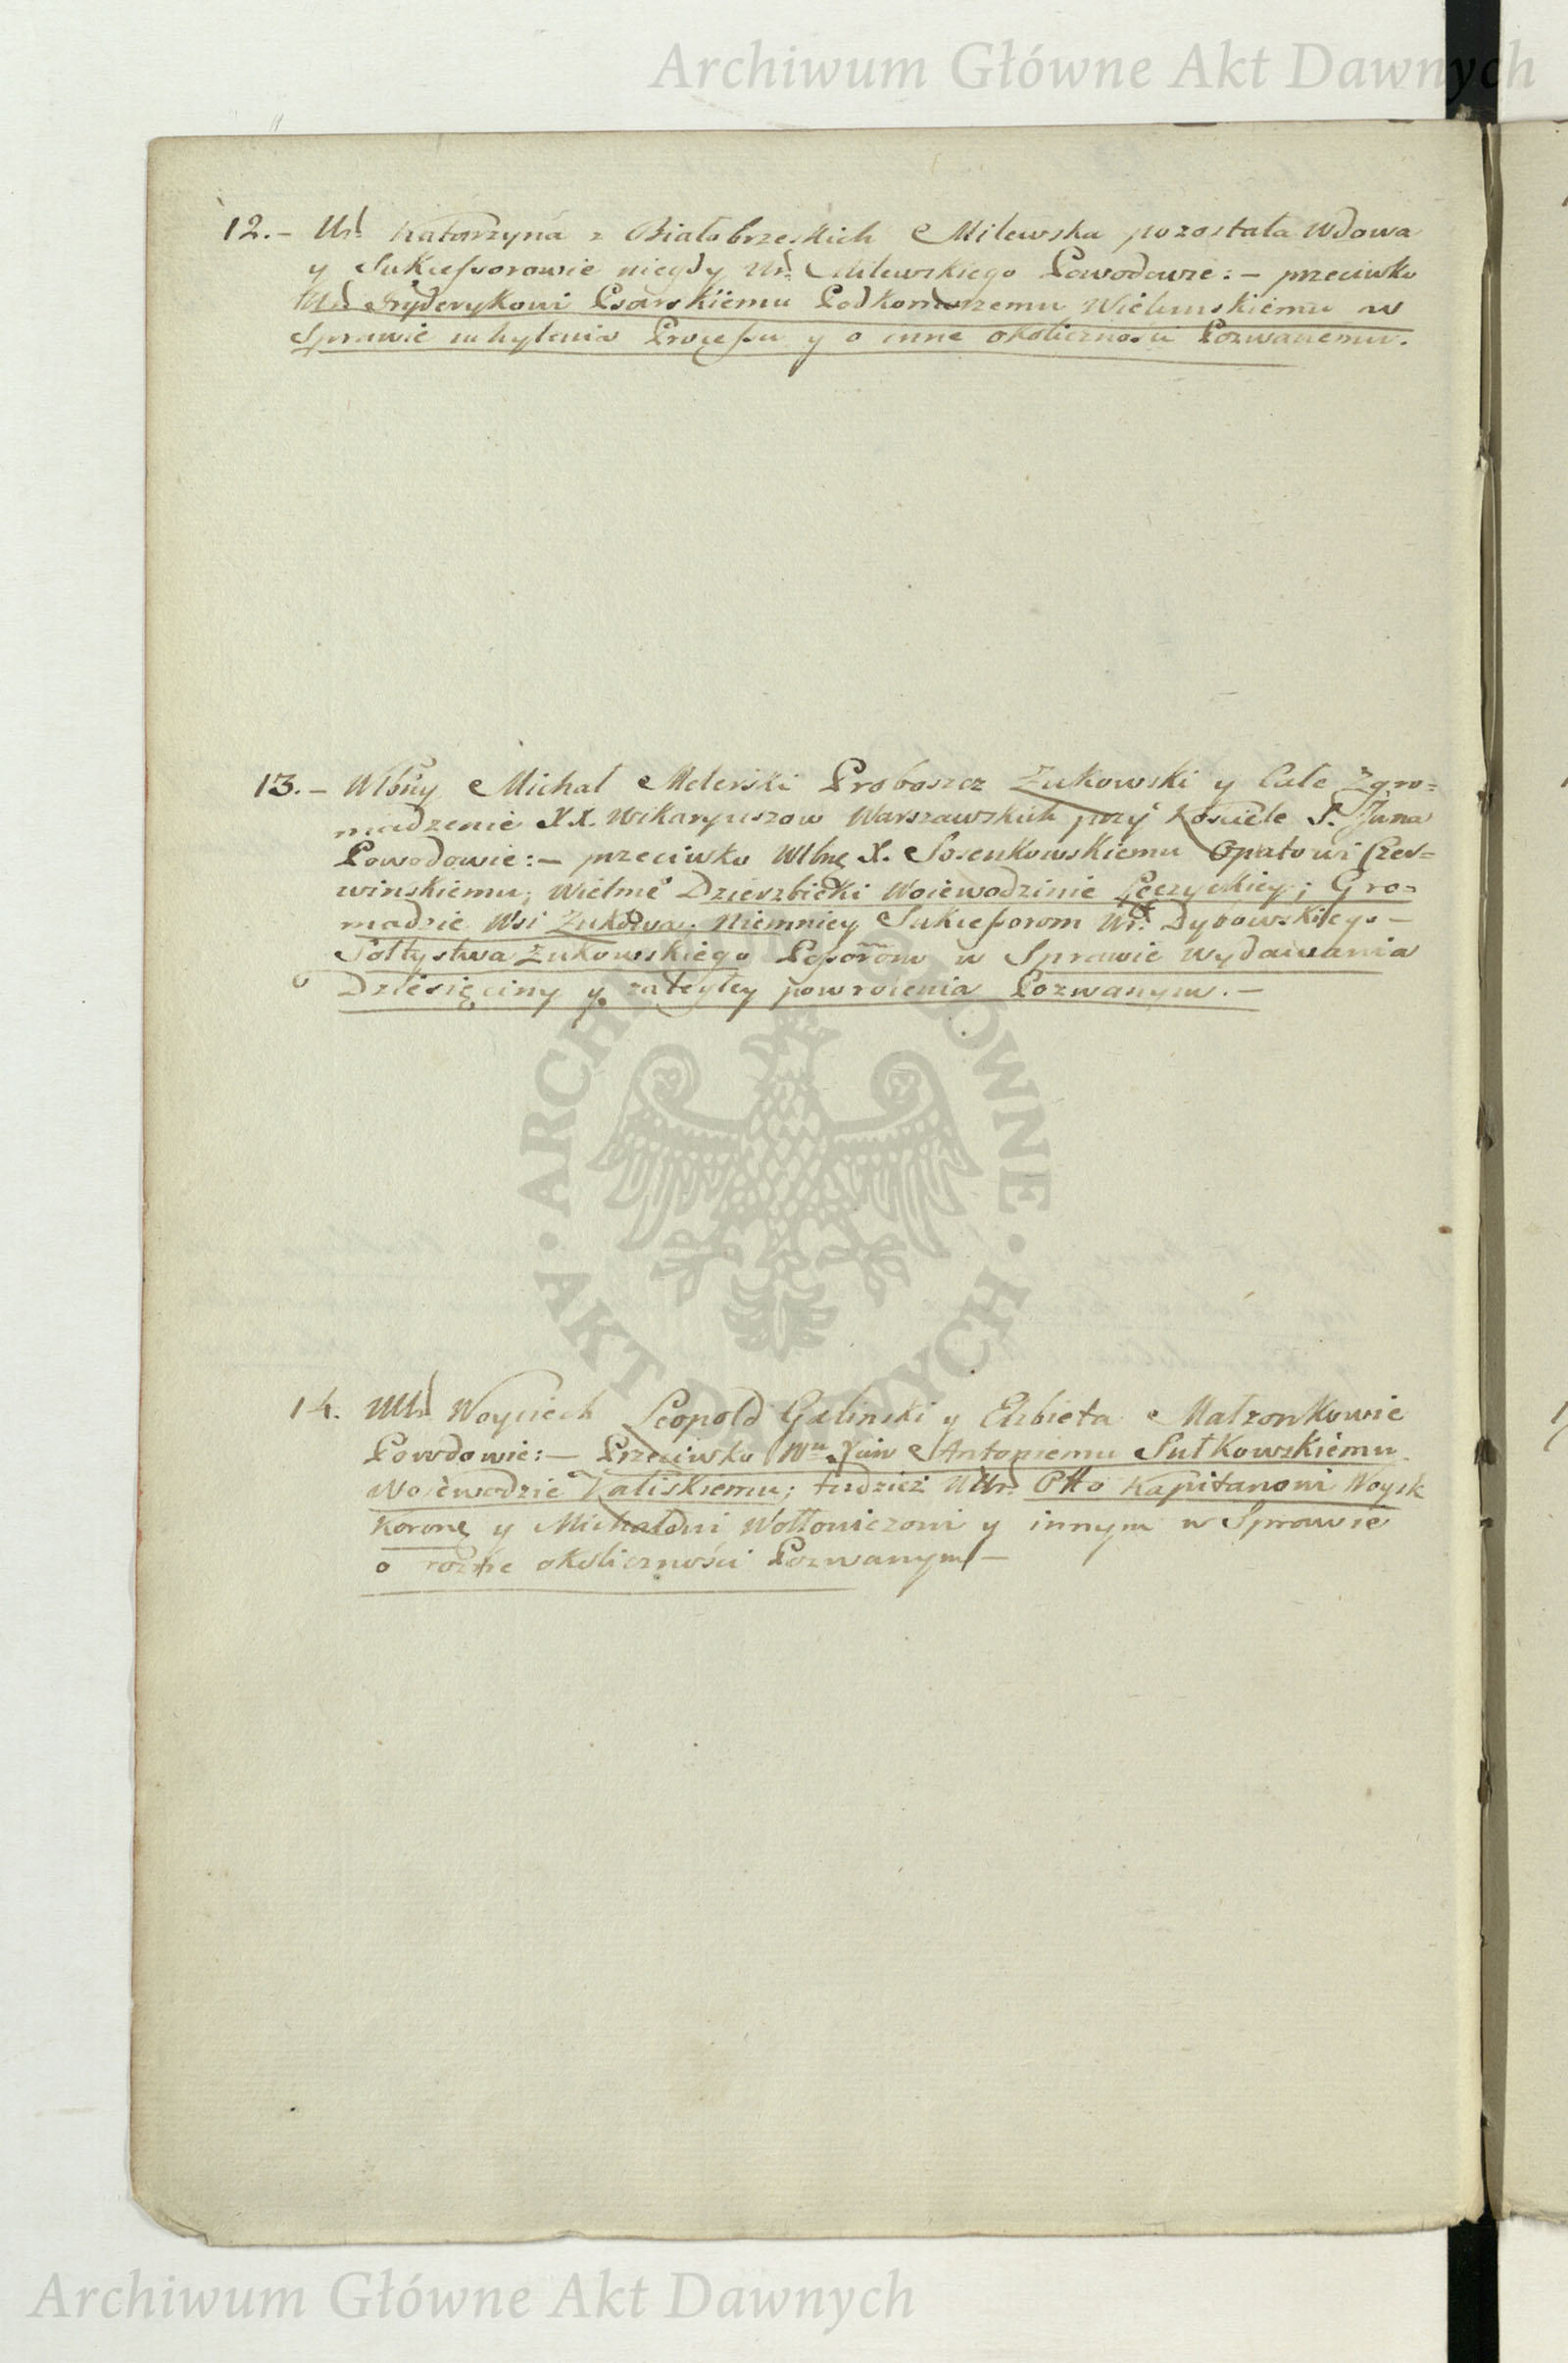 Archiwum Główne Akt Dawnych
12.- Ur. Katarzyna z Białobrzeskich Milewska pozostała Wdowa
y Sukcessorowie niegdy Ur. Milewskiego Powodowie:- przeciwko
Ur. Fryderykowi Psarskiemu Podkomorzemu Wieluńskiemu w
Sprawie uchylenia Processu y o inne okoliczności Pozwanemu.
13.- Wlbny Michał Melerski Proboszcz Żukowski y Całe Zgro=
madzenie XX. Wikaryuszow Warszawskich przy Kościele S. Jana
Powodowie:- przeciwko Wlbnę X. Sosenkowskiemu Opatowi Czer=
winskiemu; Wielmę Dzierzbicki Woiewodzinie Łęczyckiey; Gro=
madzie Wsi Żukowa. Niemniey Sukcessorom Ur. Dybowskiego -
Sołtystwa Żukowskiego Possorom w Sprawie wydawania
o Dziesięciny y zaległey powrocenia Pozwanym.-
14. UUr Woyciech Leopold Galinski y Elzbieta Małzonkowie
Powodowie:- Przeciwko Antoniemu Sułkowskiemu
Woiewodzie Kaliskiemu; tudzież UUr. Otto Kapitanowi Woysk
Koronę y Michałowi Wołłowiczowi y innym w Sprawie
o rożne okoliczności Pozwanym -
ARCHIWUM GŁÓWNE · AKT DAWNYCH ·
Archiwum Główne Akt Dawnych